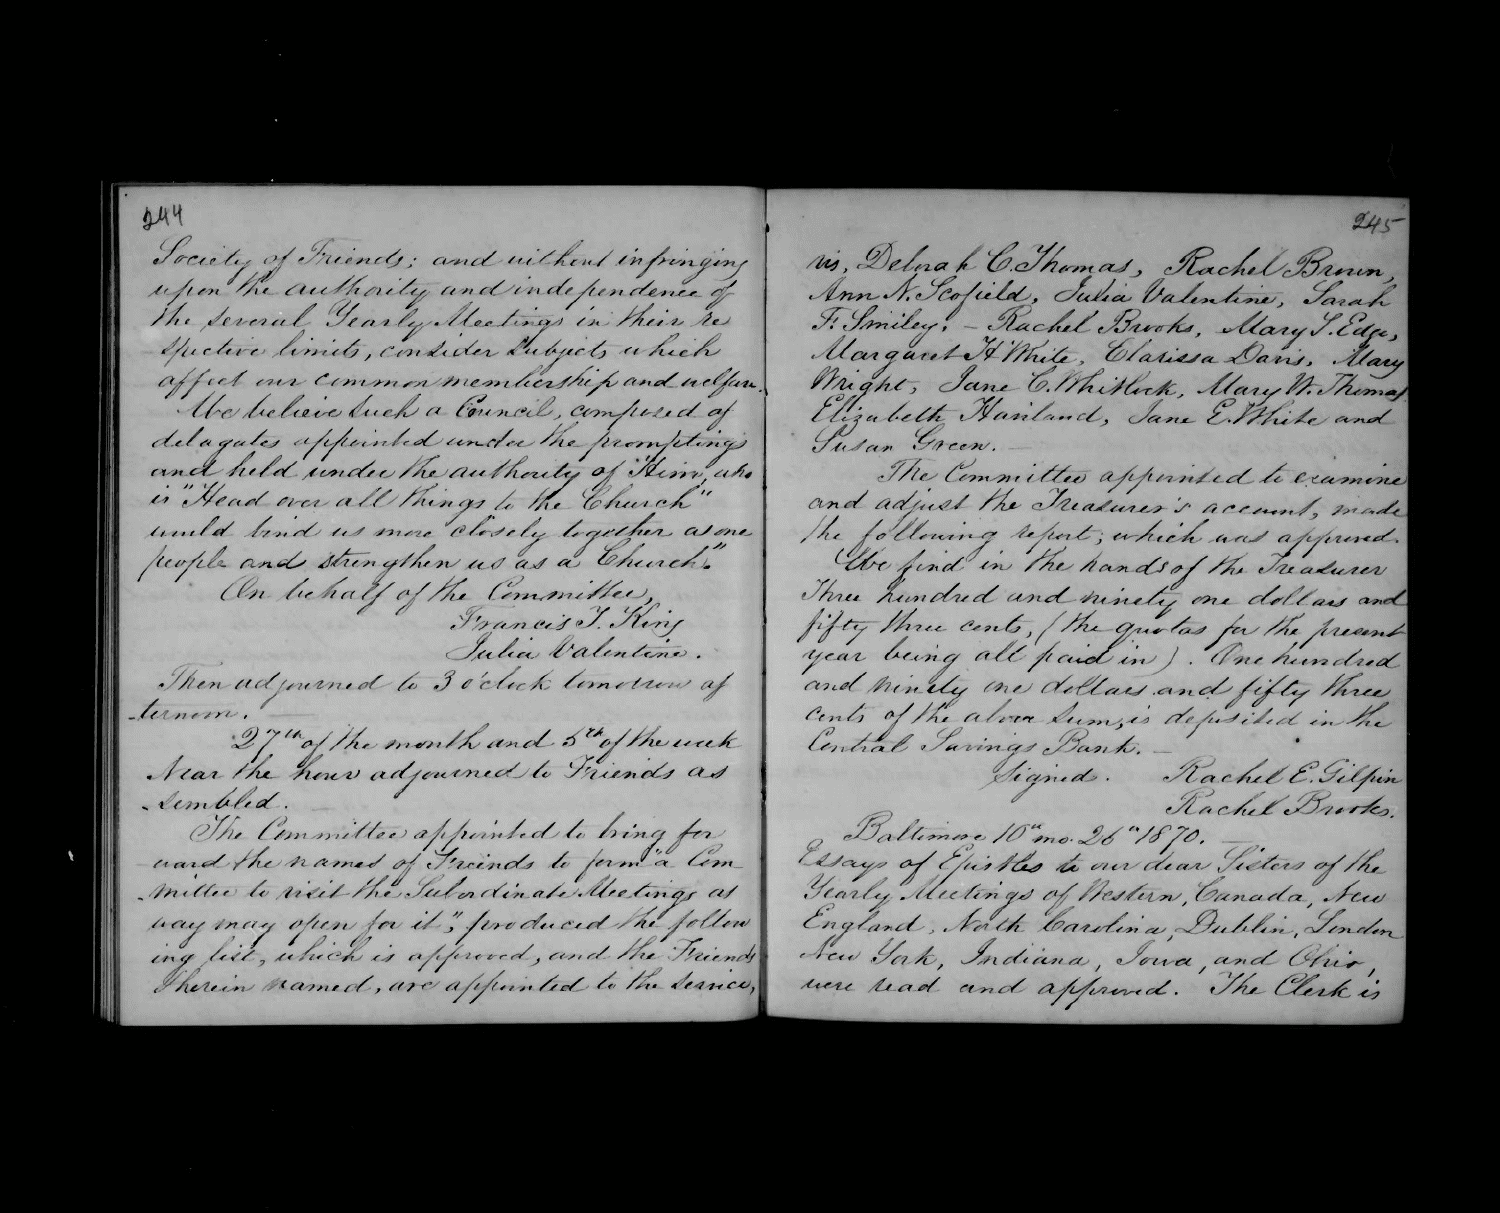 244
Society of Friends; and without infringing
upon the authority and independence of
the several Yearly Meetings in their re
spective limits, consider subjects which
affect our common membership and welfare.
We believe such a Council, composed of
delagates appointed under the promptings
and held under the authority of "Him, who
is "Head over all things to the Church"
would bind us more closely together as one
people and strengthen us as a Church."
On behalf of the Committee,
Francis T. King
Julia Valentine.
Then adjourned to 3 o'clock tomorrow af
-ternoon.
27th of the month and 5th of the week
Near the hour adjourned to Friends as
-sembled.
The Committee appointed to bring for
ward the names of Freinds to form "a Com
-mittee to visit the Subordinate Meetings as
way may open for it", produced the follow
ing list, which is approved, and the Friends
therein named, are appointed to the service,
245
vis, Deborah C. Thomas, Rachel Brown,
Ann N. Scofield, Julia Valentine, Sarah
F. Smiley, - Rachel Brooks, Mary S. Edge,
Margaret H White, Clarissa Davis, Mary
Wright, Jane C. Whitlock, Mary W. Thomas,
Elizabeth Haviland, Jane E. White and
Susan Green. -
The Committee appointed to examine
and adjust the Treasurer's account, made
the following report; which was approved.
We find in the hands of the Treasurer
Three hundred and ninety one dollars and
fifty three cents, (the quotas for the present
year being all paid in). One hundred
and ninety one dollars and fifty three
cents of the above sum, is deposited in the
Central Savings Bank. -
Signed. Rachel E. Gilpin
Rachel Brooks.
Baltimore 10th mo. 26th 1870. -
Essays of Epistles to our dear Sisters of the
Yearly Meetings of Western, Canada, New
England, North Carolina, Dublin, London
New York, Indiana, Iowa, and Ohio,
were read and approved. The Clerk is